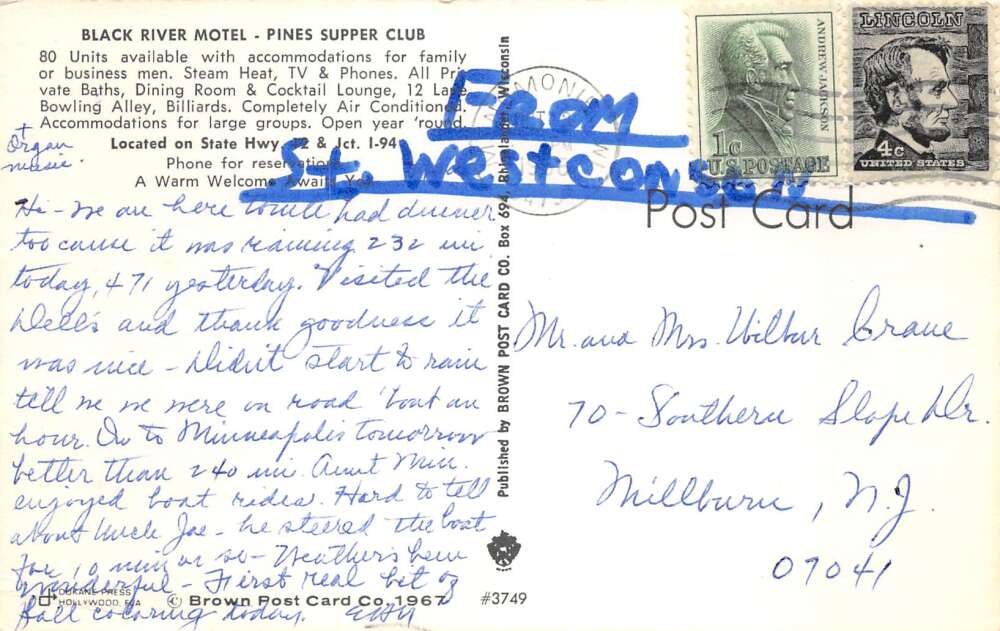 BLACK RIVER MOTEL - PINES SUPPER CLUB
80 Units available with accommodations for family
or business men. Steam Heat, TV & Phones. All Pri
vate Baths, Dining Room & Cocktail Lounge, 12 Lane
Bowling Alley, Billiards. Completely Air Conditioned.
Accommodations for large groups. Open year 'round.
Located on State Hwy. 12 & Jct. I-94
Phone for reservations
A Warm Welcome Awaits You
+ organ
music
From
St. Westconsen
ANDREW JACKSON
1c
U.S. POSTAGE
LINCOLN
4c
UNITED STATES
Post Card
Hi - We are here tonite had dinner
too cause it was raining 232 mi
today, 471 yesterday. Visited the
Dells and thank goodness it
was nice - Didn't start to rain
tell we were on road 'bout an
hour. On to Minneapolis tomorrow
better than 240 mi. Aunt Min.
enjoyed boat rides. Hard to tell
about Uncle Joe - he steered the boat
for 10 min or so - Weather's been
wonderful - First real bit of
fall coloring today.
Published by BROWN POST CARD CO. Box 694, Rhinelander, Wisconsin
Mr. and Mrs. Wilbur Crane
70 - Southern Slope Dr.
Millburn, N.J.
07041
DUKANE PRESS
HOLLYWOOD, FLA
© Brown Post Card Co. 1967
#3749